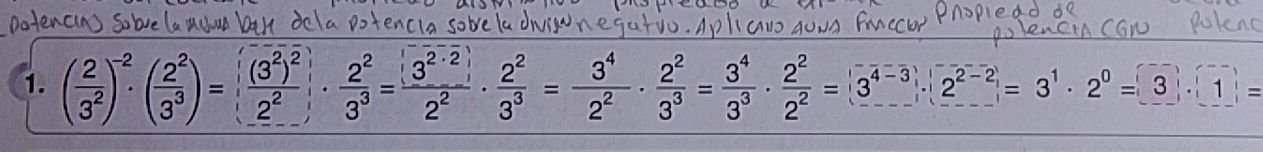 potencias sobre la misma base de la potencia sobre la división negativo. Aplicado a una fracción Propiedad de potencia cero Potenc
1. (2/3²)⁻² · (2²/3³) = (3²)²/2² · 2²/3³ = 3^(2·2)/2² · 2²/3³ = 3⁴/2² · 2²/3³ = 3⁴/3³ · 2²/2² = 3^(4-3) · 2^(2-2) = 3¹ · 2⁰ = 3 · 1 =